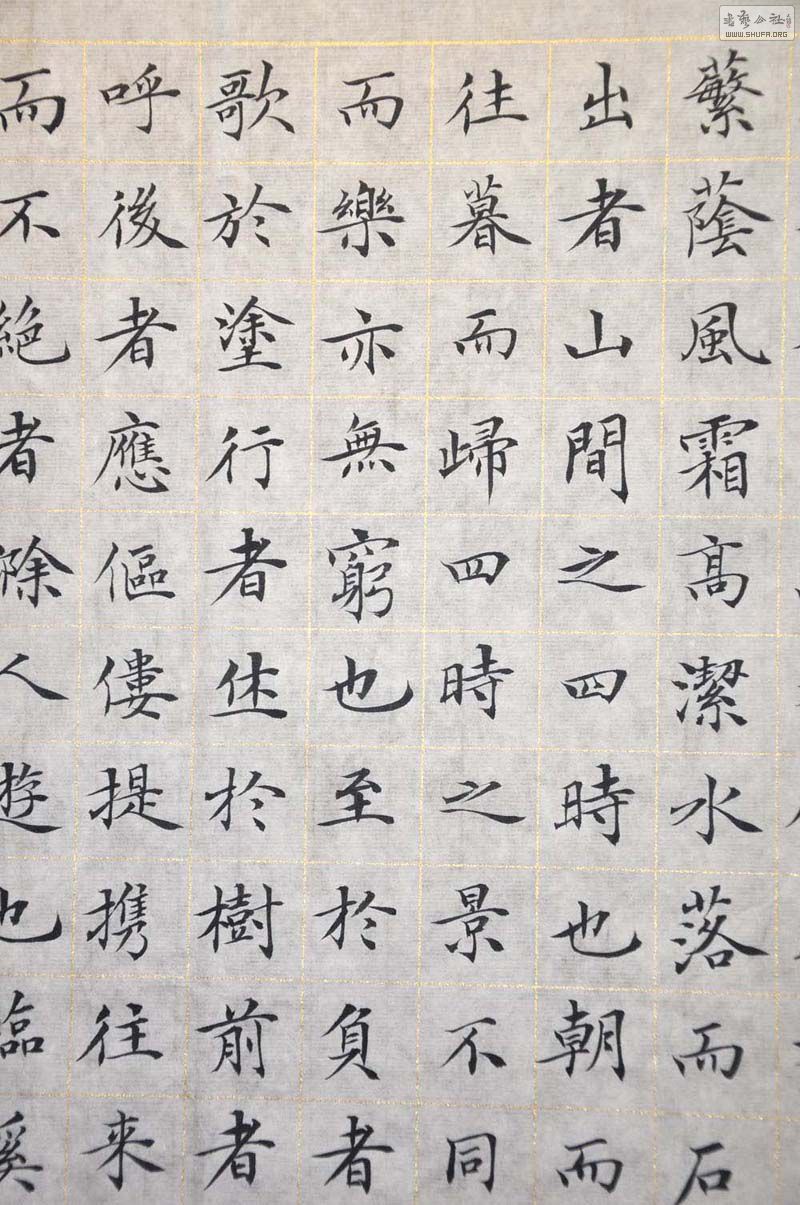 繁蔭風霜高潔水落而石
出者山間之四時也朝而
往暮而歸四時之景不同
而樂亦無窮也至於負者
歌於塗行者休於樹前者
呼後者應傴僂提携往来
而不絶者滁人遊也臨谿
書藝公社
WWW.SHUFA.ORG